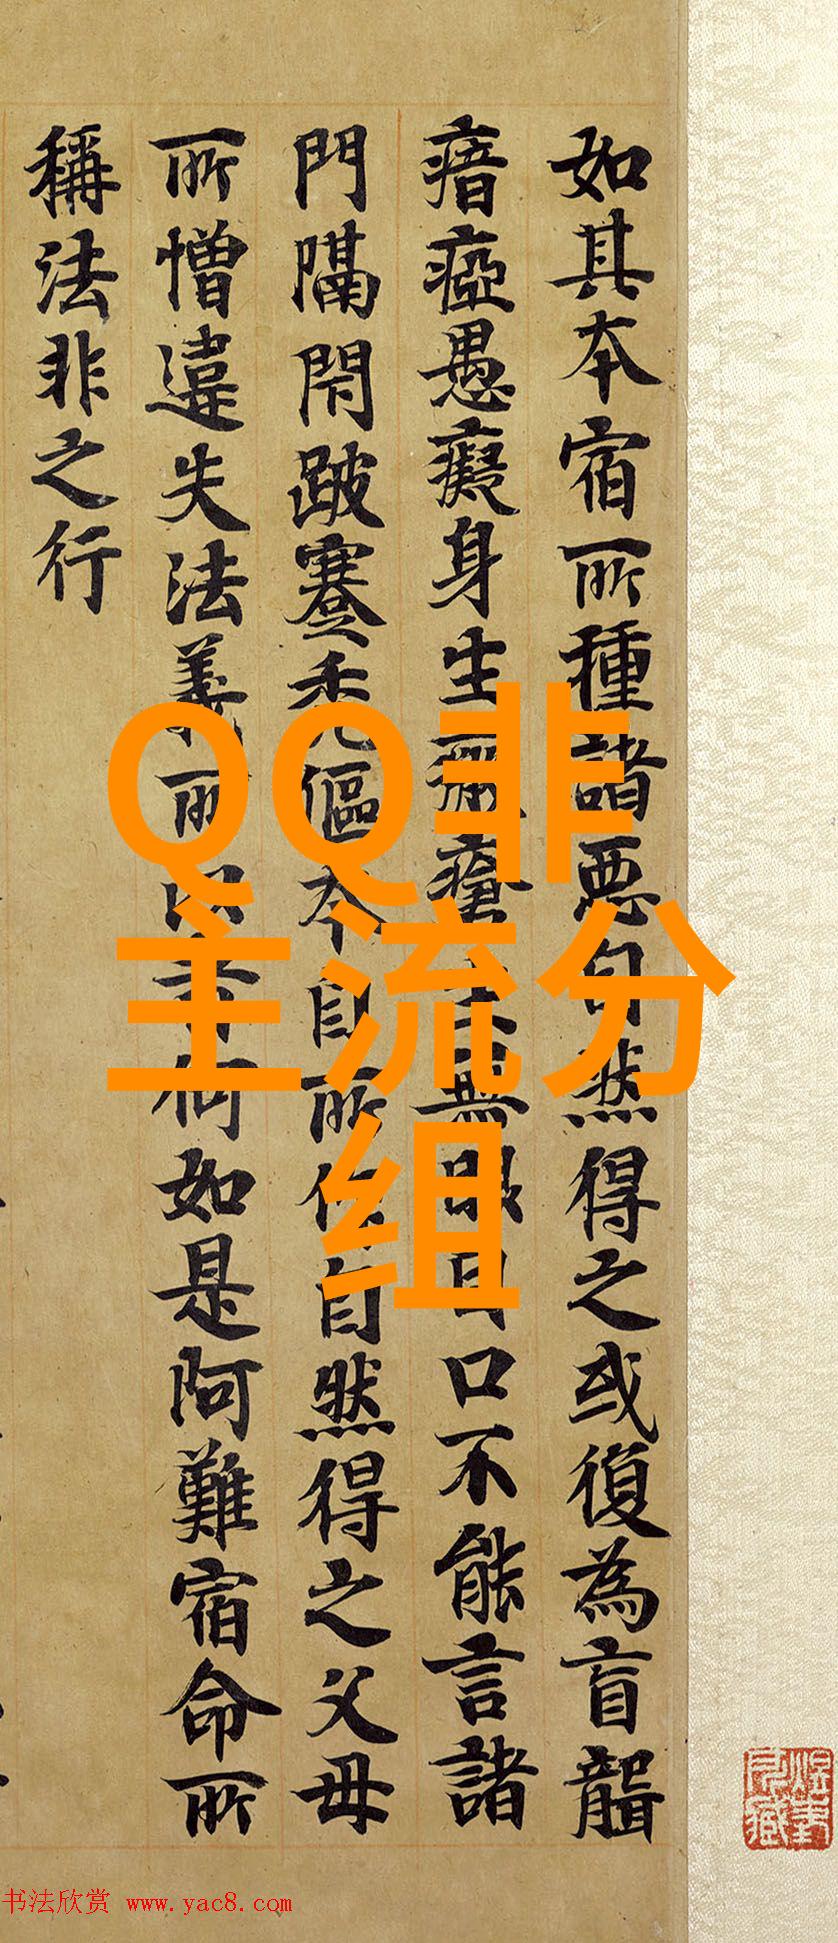 如其本宿所種諸惡自然得之或復為盲聾
瘖瘂愚癡身生無眼目口不能言諸
門隔閇跛蹇禿傴本自所作自然得之父母
所憎違失法義所以者何如是阿難宿命所
稱法非之行
QQ非
主流分
组
书法欣赏 www.yac8.com